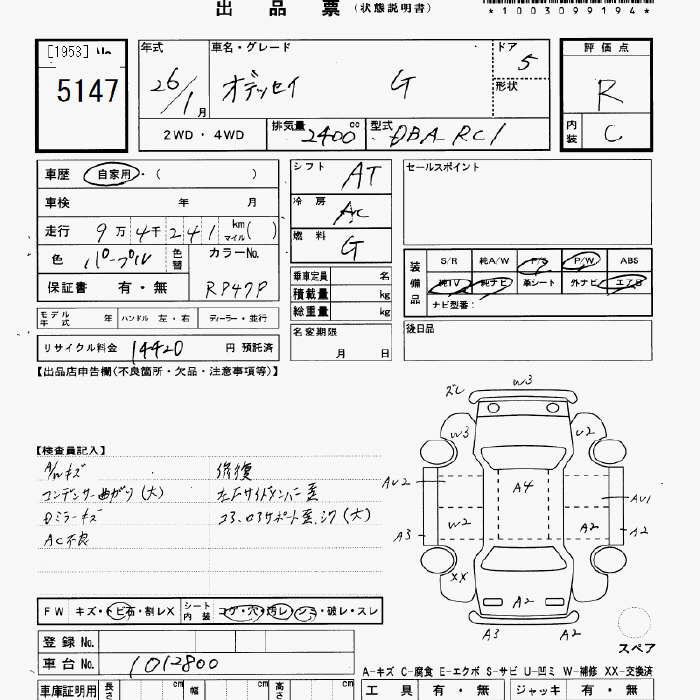 出品票(状態説明書)
*1003099194*
[1953]
5147
年式 26/1月
車名・グレード オデッセイ G
ドア 5
形状
評価点 R
内装 C
2WD・4WD
排気量 2400cc
型式 DBA RC1
車歴 自家用・( )
車検 年 月
走行 9万4千241 km マイル( )
色 パープル 色替
カラーNo. RP47P
保証書 有・無
シフト AT
冷房 AC
燃料 G
セールスポイント
装備品
S/R 純A/W P/S P/W ABS
純TV 純ナビ 革シート 外ナビ エアB
ナビ型番:
乗車定員 名
積載量 kg
総重量 kg
モデル年式 年 ハンドル 左・右 ディーラー・並行
名変期限 月 日
後日品
リサイクル料金 14420 円 預託済
【出品店申告欄(不良箇所・欠品・注意事項等)】
【検査員記入】
A/Wキズ
コンデンサー曲がり(大)
Dミラーキズ
AC不良
修復
左Fサイドメンバー歪
コア,ロアサポート歪,シワ(大)
ズレ W3
W3 U2
AU2 A4 AU1
A3 W2 A2 A2
XX A2
A3 A2
スペア
FW キズ・トビ石・割レX
シート内装 コゲ・穴・汚レ・シミ・破レ・スレ
登録No.
車台No. 1012800
A-キズ C-腐食 E-エクボ S-サビ U-凹ミ W-補修 XX-交換済
車庫証明用 長さ cm 幅 cm 高さ cm
工具 有・無 ジャッキ 有・無